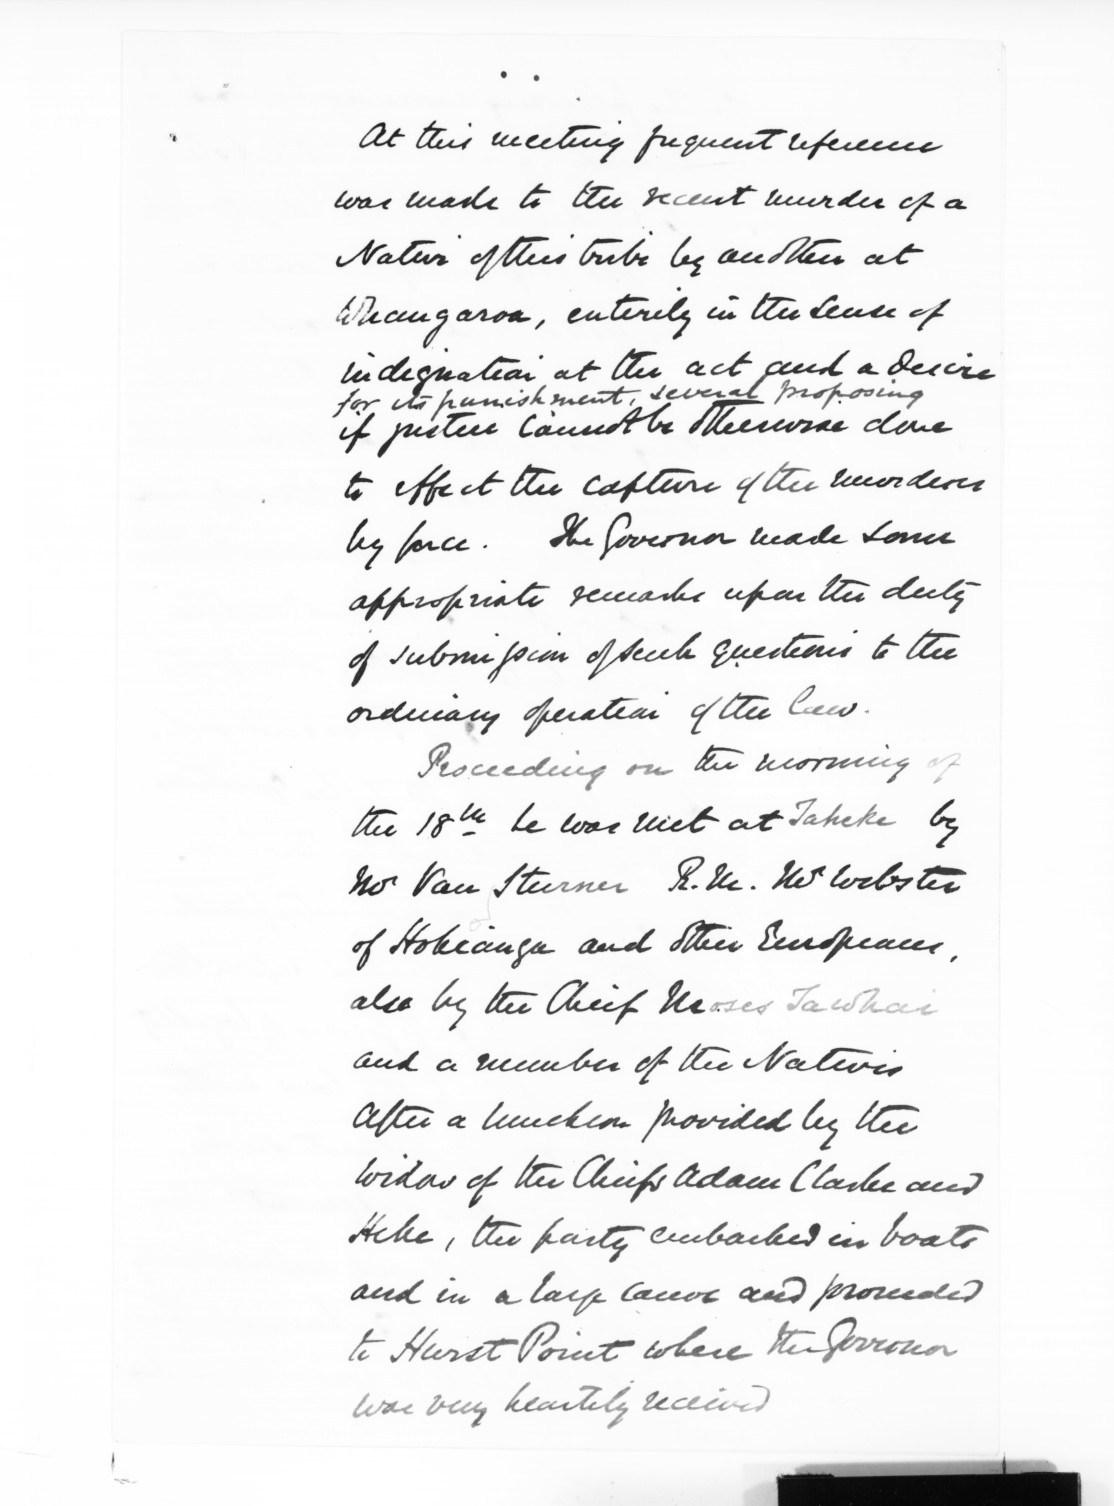 At this meeting frequent reference
was made to the recent murder of a
Native of this tribe by another at
Whangaroa, entirely in the sense of
indignation at the act and a desire
for its punishment, several proposing
if justice cannot be otherwise done
to effect the capture of the murderer
by force. The Governor made some
appropriate remarks upon the duty
of submission of such questions to the
ordinary operation of the law.
Proceeding on the morning of
the 18th he was met at Taheke by
Mr Van Sturmer R.M. Mr Webster
of Hokianga and other Europeans,
also by the Chief Moses Tawhai
and a number of the Natives
After a luncheon provided by the
widow of the Chiefs Adam Clarke and
Heke, the party embarked in boats
and in a large canoe and proceeded
to Hurst Point where the Governor
was very heartily received